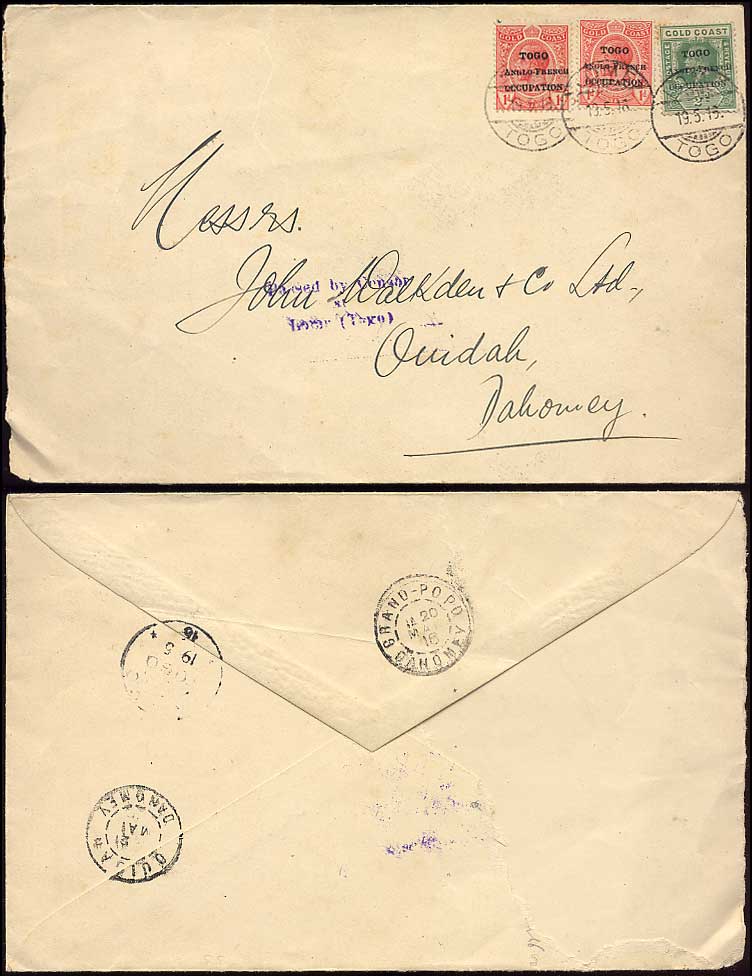 GOLD COAST
TOGO
ANGLO-FRENCH
OCCUPATION
1d 1d
GOLD COAST
TOGO
ANGLO-FRENCH
OCCUPATION
1d 1d
GOLD COAST
POSTAGE
TOGO
ANGLO-FRENCH
OCCUPATION
TOGO
19.5.16.
TOGO
19.5.16.
TOGO
Messrs.
John Walkden & Co Ltd.,
Passed by Censor
at
Lome (Togo)
Ouidah,
Dahomey.
GRAND-POPO
20
MAI
16
DAHOMEY
16
19 5
DAHOMEY
MAI